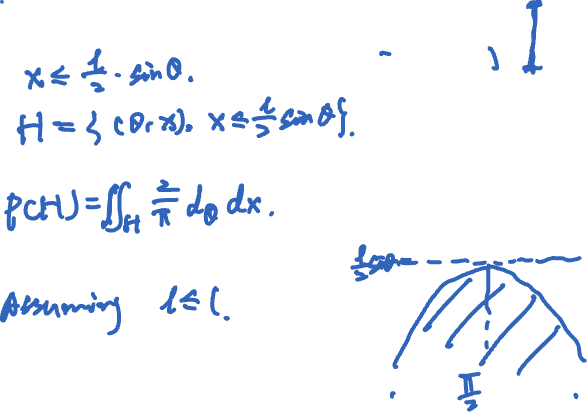 x ≤ l/2 · sinθ.
H = { (θ, x), x ≤ l/2 sinθ }.
P(H) = ∬_H 2/π dθ dx.
l/2 sinθ
Assuming l ≤ 1.
π/2